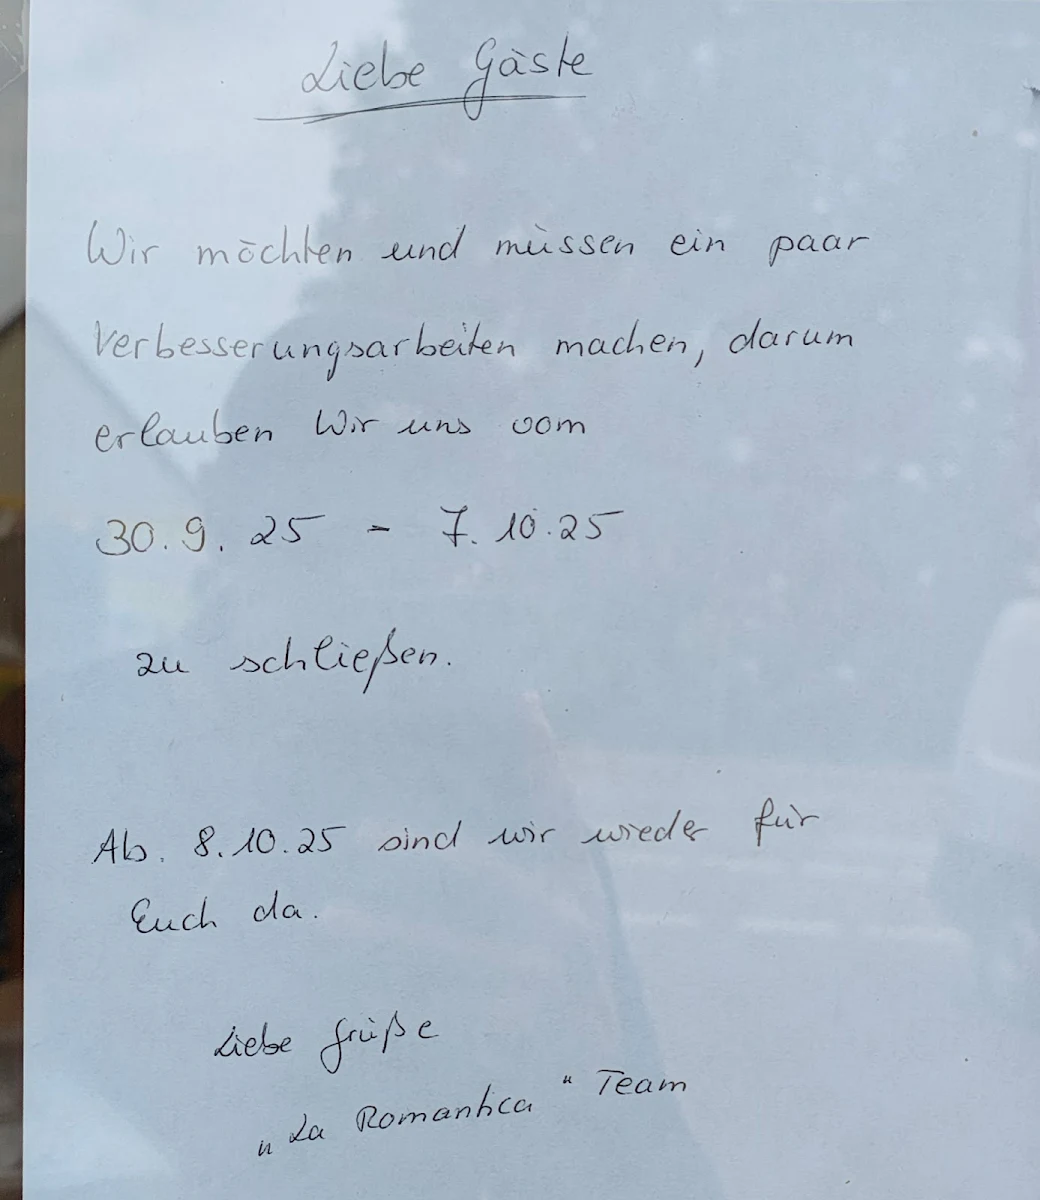 Liebe Gäste
Wir möchten und müssen ein paar
Verbesserungsarbeiten machen, darum
erlauben Wir uns vom
30.9.25 - 7.10.25
zu schließen.
Ab. 8.10.25 sind wir wieder für
Euch da.
Liebe Grüße
„La Romantica“ Team